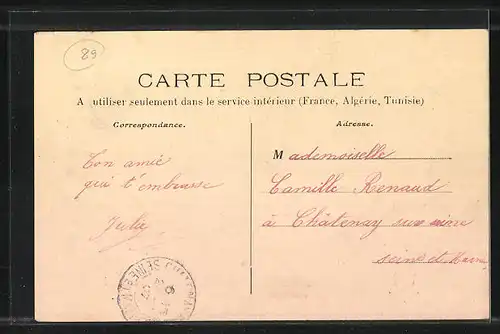 89
CARTE POSTALE
A utiliser seulement dans le service intérieur (France, Algérie, Tunisie)
Correspondance.
Adresse.
Ton amie
qui t'embrasse
Julie
Mademoiselle
Camille Renaud
à Châtenay sur seine
seine et Marne